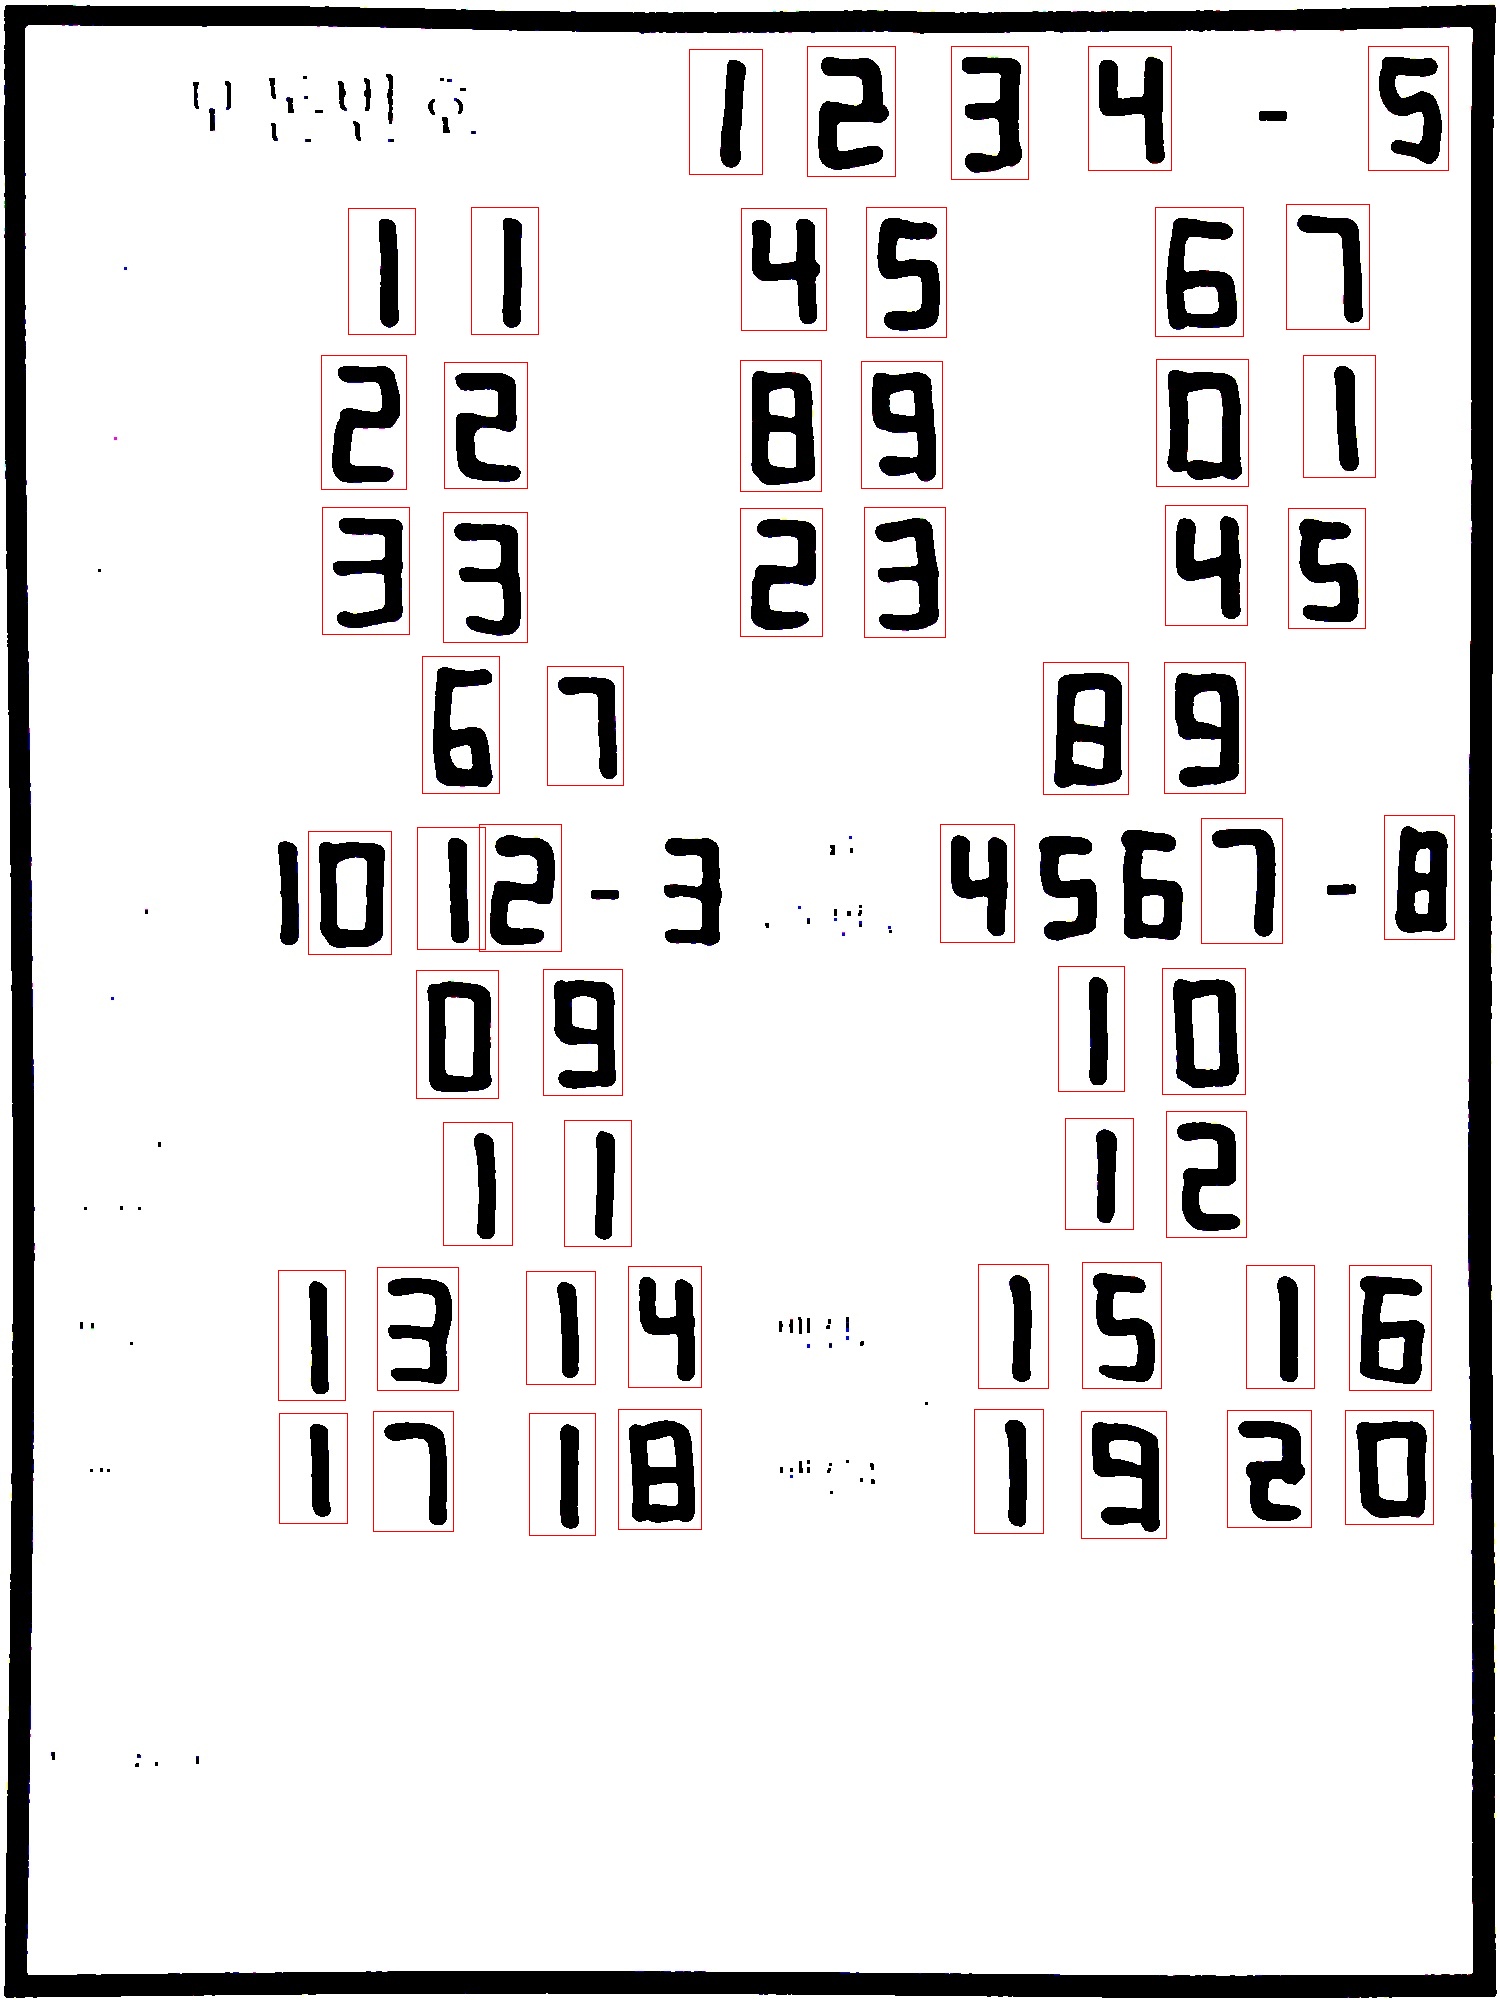 1 2 3 4 - 5
1 1 4 5 6 7
2 2 8 9 0 1
3 3 2 3 4 5
6 7 8 9
10 12 - 3 4567 - 8
0 9 1 0
1 1 1 2
1 3 1 4 1 5 1 6
1 7 1 8 1 9 2 0